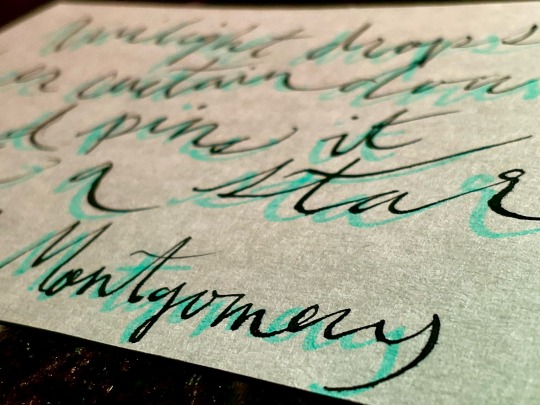 Twilight drops
er curtain down
d pins it
a star
Montgomery